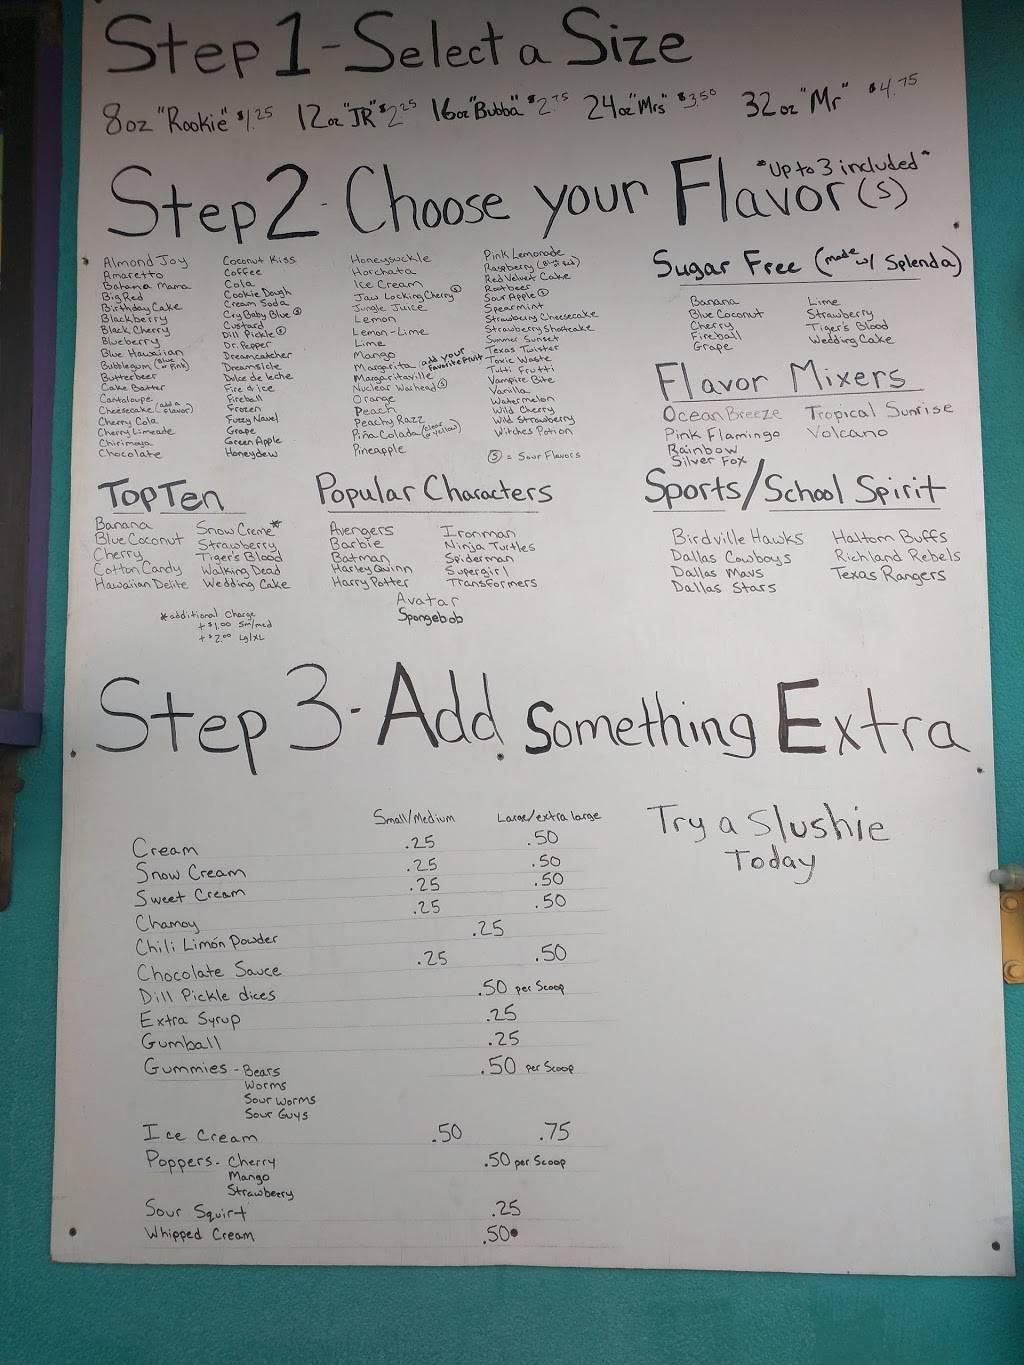 Step 1 - Select a Size
8oz "Rookie" $1.25 12oz "JR" $2.25 16oz "Bubba" $2.75 24oz "Mrs" $3.50 32oz "Mr" $4.75
Step 2 - Choose your Flavor(s)
"Up to 3 included"
Almond Joy
Amaretto
Bahama Mama
Big Red
Birthday Cake
Blackberry
Black Cherry
Blueberry
Blue Hawaiian
Bubblegum (Blue or Pink)
Butterbeer
Cake Batter
Cantaloupe
Cheesecake (add a flavor)
Cherry Cola
Cherry Limeade
Chirimoya
Chocolate
Coconut Kiss
Coffee
Cola
Cookie Dough
Cream Soda
Cry Baby Blue (S)
Custard
Dill Pickle (S)
Dr. Pepper
Dreamcatcher
Dreamsicle
Dulce de leche
Fire & ice
Fireball
Frozen
Fuzzy Navel
Grape
Green Apple
Honeydew
Honeysuckle
Horchata
Ice Cream
Jaw Locking Cherry (S)
Jungle Juice
Lemon
Lemon-Lime
Lime
Mango
Margarita (add your favorite fruit)
Margaritaville
Nuclear Warhead (S)
Orange
Peach
Peachy Razz
Piña Colada (clear or yellow)
Pineapple
Pink Lemonade
Raspberry (Blue or Red)
Red Velvet Cake
Rootbeer
Sour Apple (S)
Spearmint
Strawberry Cheesecake
Strawberry Shortcake
Summer Sunset
Texas Twister
Toxic Waste
Tutti Frutti
Vampire Bite
Vanilla
Watermelon
Wild Cherry
Wild Strawberry
Witches Potion
(S) = Sour Flavors
Sugar Free (made w/ Splenda)
Banana
Blue Coconut
Cherry
Fireball
Grape
Lime
Strawberry
Tiger's Blood
Wedding Cake
Flavor Mixers
Ocean Breeze
Pink Flamingo
Rainbow
Silver Fox
Tropical Sunrise
Volcano
Top Ten
Banana
Blue Coconut
Cherry
Cotton Candy
Hawaiian Delite
Snow Creme*
Strawberry
Tiger's Blood
Walking Dead
Wedding Cake
*additional charge
+$1.00 sm/med
+$2.00 Lg/XL
Popular Characters
Avengers
Barbie
Batman
Harley Quinn
Harry Potter
Ironman
Ninja Turtles
Spiderman
Supergirl
Transformers
Avatar
Spongebob
Sports/School Spirit
Birdville Hawks
Dallas Cowboys
Dallas Mavs
Dallas Stars
Haltom Buffs
Richland Rebels
Texas Rangers
Step 3 - Add Something Extra
Small/Medium Large/extra large
Cream .25 .50
Snow Cream .25 .50
Sweet Cream .25 .50
Chamoy .25 .50
Chili Limón Powder .25
Chocolate Sauce .25 .50
Dill Pickle dices .50 per Scoop
Extra Syrup .25
Gumball .25
Gummies - Bears .50 per Scoop
Worms
Sour Worms
Sour Guys
Ice Cream .50 .75
Poppers - Cherry .50 per Scoop
Mango
Strawberry
Sour Squirt .25
Whipped Cream .50
Try a Slushie
Today